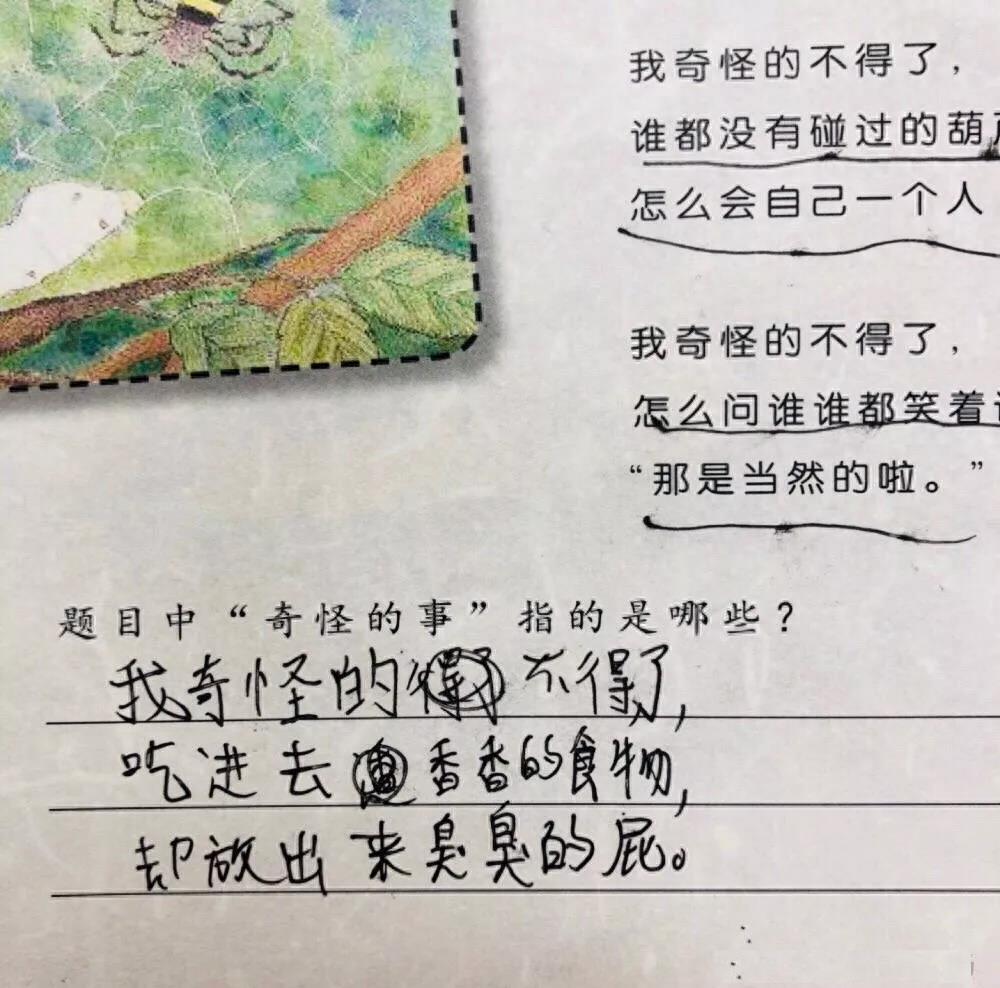 我奇怪的不得了，
谁都没有碰过的葫
怎么会自己一个人
我奇怪的不得了，
怎么问谁谁都笑着
“那是当然的啦。”
题目中“奇怪的事”指的是哪些？
我奇怪的不得了，
吃进去香香的食物，
却放出来臭臭的屁。